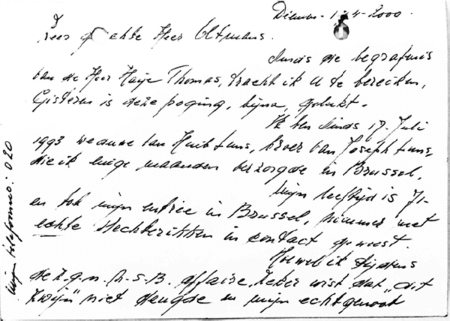 Diemen - 17-4-2000
Zeer geachte Heer Oltmans.
Sinds de begrafenis
van de Heer Haye Thomas, tracht ik U te bereiken,
Gisteren is deze poging, bijna, gelukt.
Ik ben sinds 17 Juli
1993 weduwe van Huib Luns, broer van Joseph Luns,
die ik enige maanden verzorgde in Brussel,
Mijn leeftijd is 71
en tot mijn entree in Brussel, nimmer met
echte slechteriken in contact geweest.
Hoewel ik tijdens
de z.g.n. N.S.B. affaire, zeker wist dat "dit
zwijn" niet deugde en mijn echtgenoot
Mijn telefoonno: 020